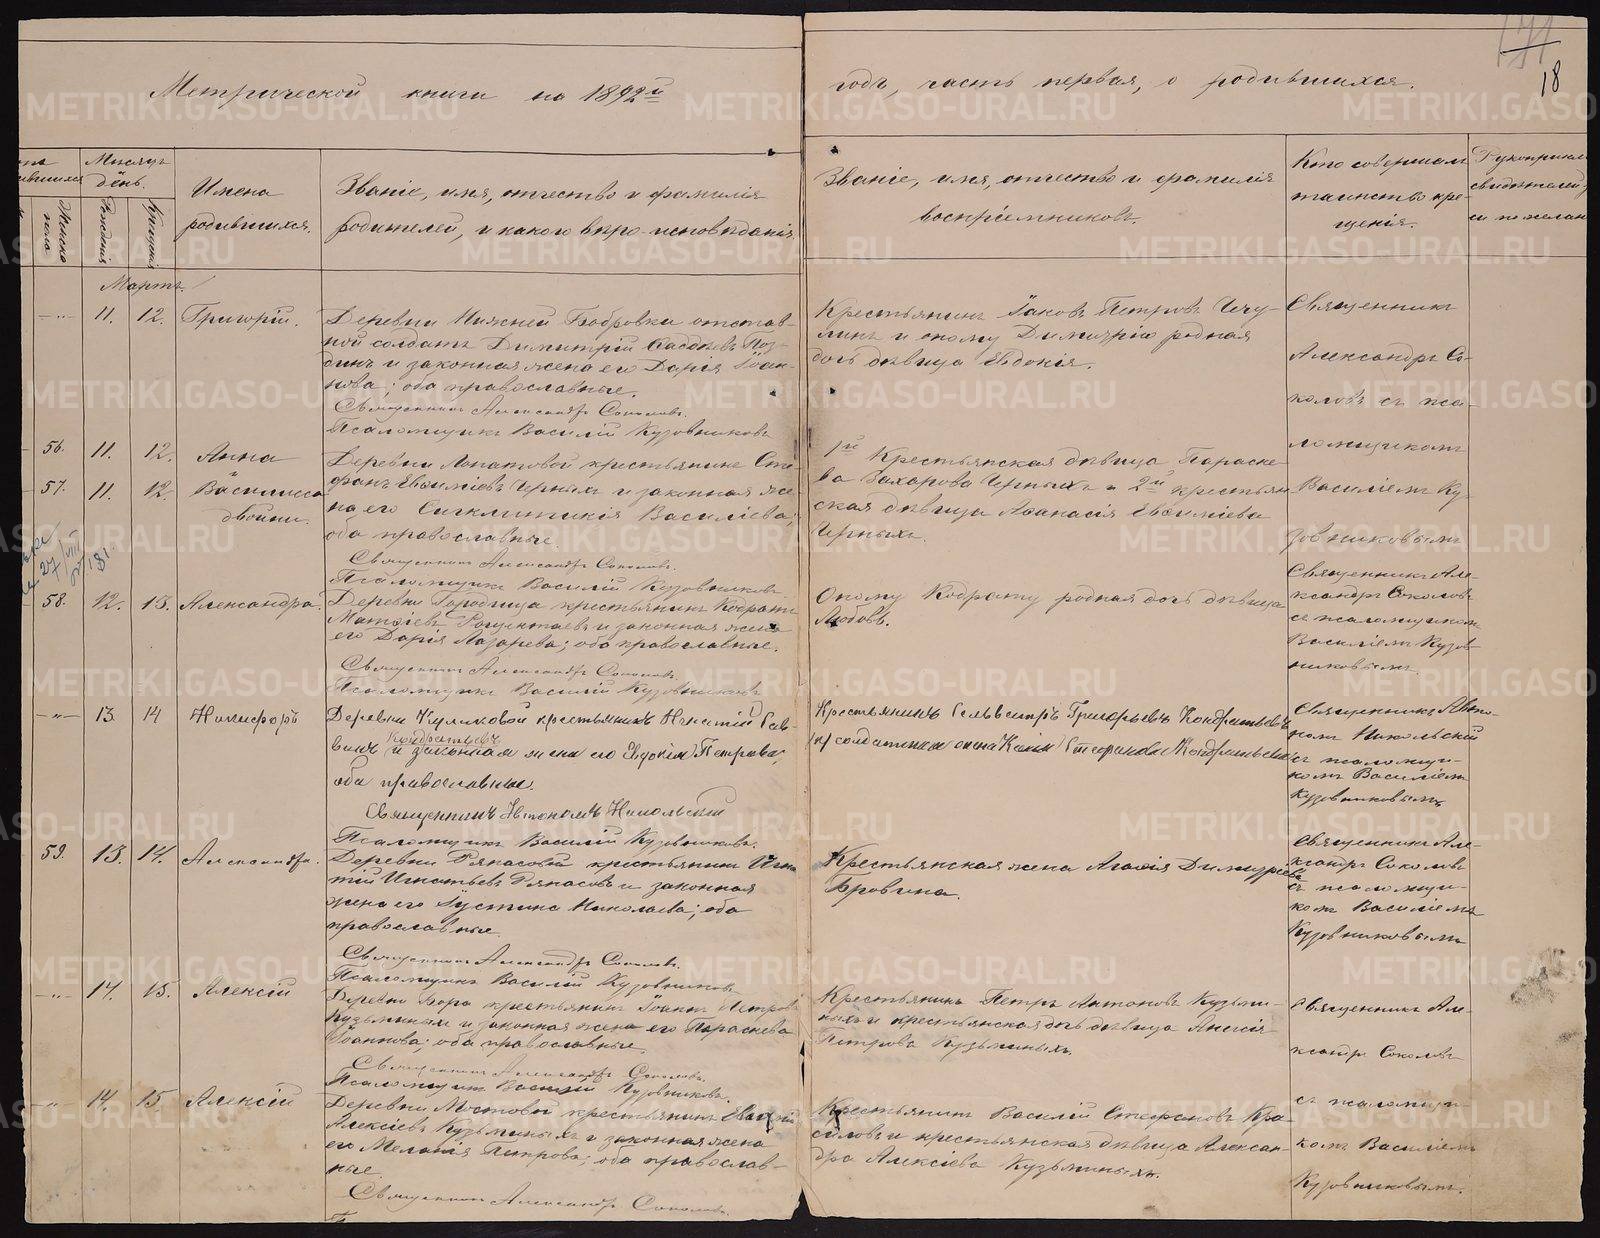 Метрической книги на 1892й
годъ, часть первая, о родившихся.
18
Мѣсяцъ
день.
Женска
пола
Рожденія
Крещенія
Имена
родившихся.
Званіе, имя, отчество и фамилія
родителей, и какого вѣро-исповѣданія.
Званіе, имя, отчество и фамилія
воспріемниковъ.
Кто совершал
таинство кре-
щенія.
Рукоприкл
свидѣтелей
Мартъ
-"- 11. 12. Григорій.
Деревни Нижней Бобровки отстав-
ной солдатъ Димитрій
и законная жена его Дарія Іоан-
нова; оба православные.
Священникъ Александръ Соколовъ.
Псаломщикъ Василій Кузовниковъ
Крестьянинъ Іаковъ Петровъ Чечу-
линъ и оному Димитрію родная
дочь дѣвица Евдокія.
Священникъ
Александръ Со-
коловъ съ пса-
ломщикомъ
Василіемъ Ку-
зовниковымъ
56. 11. 12. Анна
и
57. 11. 12. Василисса
двойни.
Деревни Лопатовой крестьянинъ Сте-
фанъ Евѳиміевъ Черныхъ и законная же-
на его Сигклитикія Василіева;
оба православные.
Священникъ Александръ Соколовъ.
Псаломщикъ Василій Кузовниковъ
1й Крестьянская дѣвица Параске-
ва Захарова Черныхъ и 2й крестьян
ская дѣвица Аѳанасія Евѳиміева
Черныхъ.
58. 12. 13. Александра.
Деревни Городища крестьянинъ Кодратъ
и законная жена
его Дарія Лазарева; оба православные.
Священникъ Александръ Соколовъ.
Псаломщикъ Василій Кузовниковъ
Оному Кодрату родная дочь дѣвица
Любовь.
Священникъ Але-
ксандръ Соколовъ
съ псаломщикомъ
Василіемъ Кузов-
никовымъ.
-"- 13. 14 Никифоръ
Деревни Куликовой крестьянинъ Игнатій Сав-
винъ Кондратьевъ и законная жена его Евдокія Петрова;
оба православные.
Священникъ Автономъ Никольскій
Псаломщикъ Василій Кузовниковъ.
Крестьянинъ Сельвестръ Григорьевъ Кондратьевъ
(и) солдатская жена Стефанова Кондратьева
Священникъ Авто-
номъ Никольскій
съ псаломщи-
комъ Василіемъ
Кузовниковымъ
59. 13. 14. Александра.
Деревни Рякасовой крестьянинъ Игна
тій Игнатьевъ Рякасовъ и законная
жена его Іустина Николаева; оба
православные.
Священникъ Александръ Соколовъ.
Псаломщикъ Василій Кузовниковъ
Крестьянская жена Агаѳія Димитріева
Бровина.
Священникъ Але-
ксандръ Соколовъ
съ псаломщи-
комъ Василіемъ
Кузовниковымъ
-"- 14. 15. Алексій
Деревни Бора крестьянинъ Іоаннъ Петровъ
Кузьминыхъ и законная жена его Параскева
Іоаннова; оба православные.
Священникъ Александръ Соколовъ.
Псаломщикъ Василій Кузовниковъ.
Крестьянинъ Петръ Антоновъ Кузьми-
ныхъ и крестьянская дочь дѣвица Анисія
Петрова Кузьминыхъ.
Священникъ Але-
ксандръ Соколовъ
съ псаломщи-
комъ Василіемъ
Кузовниковымъ.
-"- 14. 15 Алексій
Деревни Мостовой крестьянинъ
Алексіевъ Кузьминыхъ и законная жена
его Меланія Петрова; оба православ-
ные.
Священникъ Александръ Соколовъ.
Крестьянинъ Василій Стефановъ Кра-
силовъ и крестьянская дѣвица Алексан-
дра Алексіева Кузьминыхъ.
METRIKI.GASO-URAL.RU